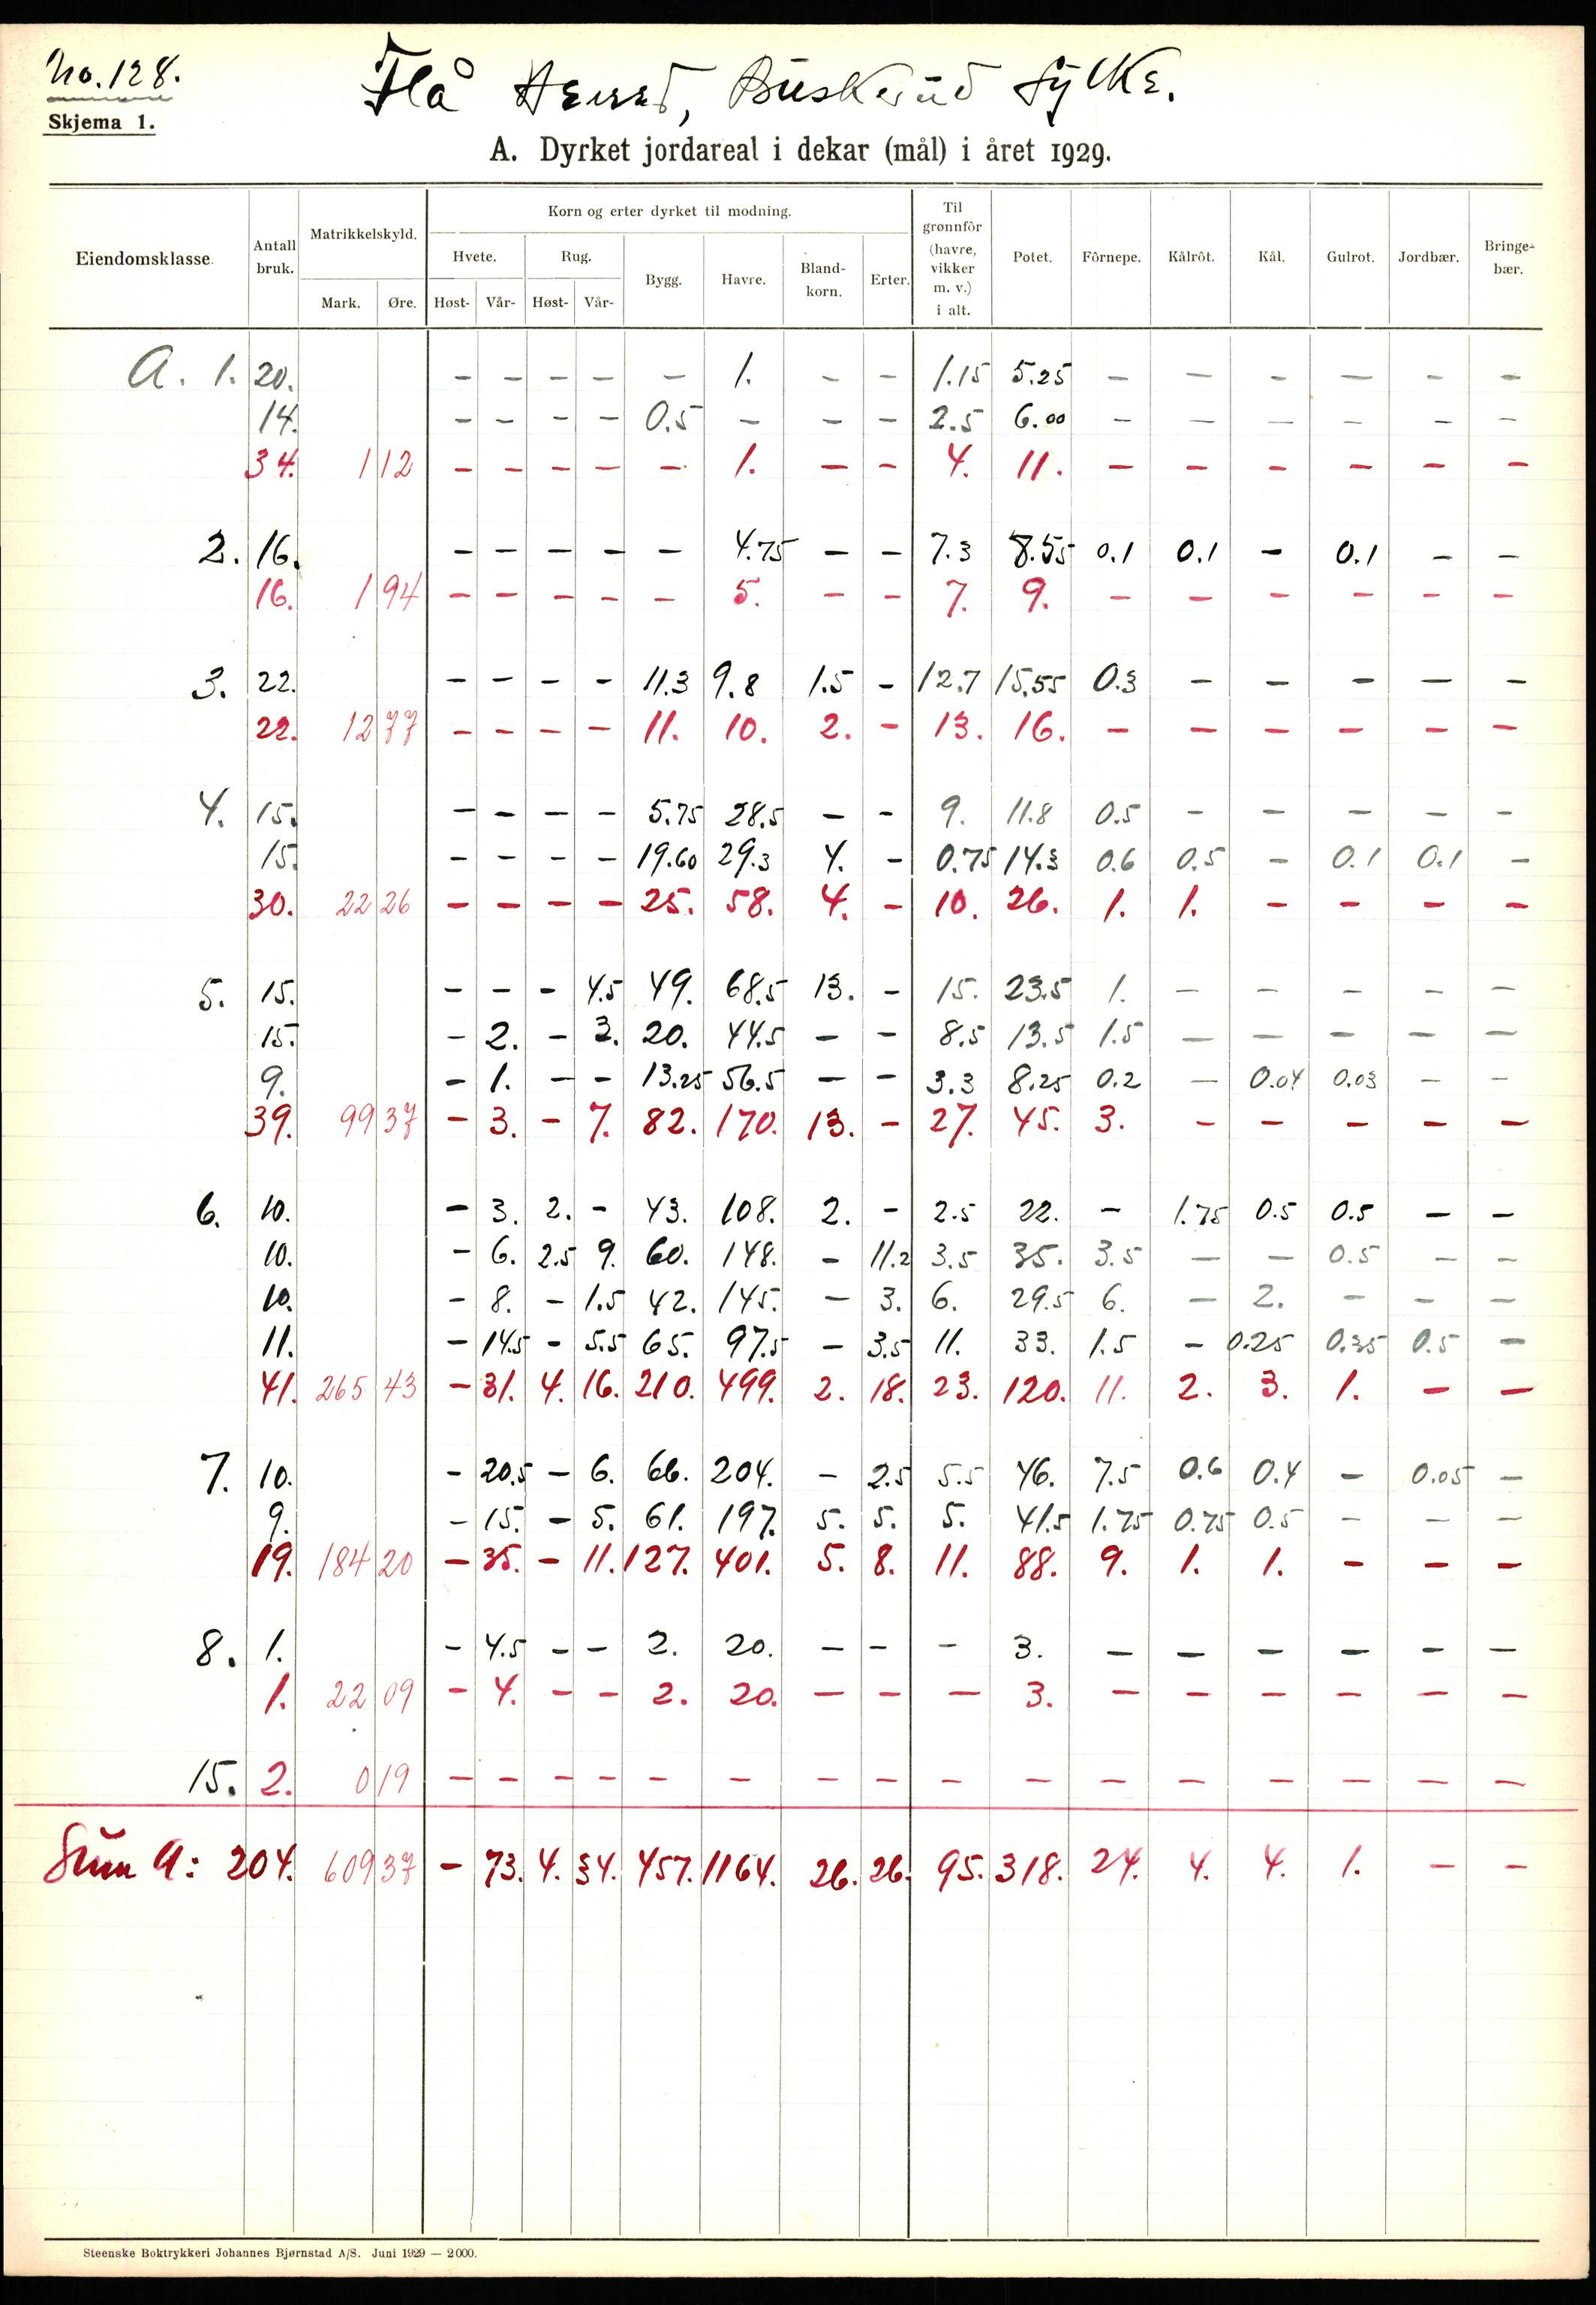 No. 128.
Skjema 1.
Flå Herred, Buskerud Fylke.
A. Dyrket jordareal i dekar (mål) i året 1929.
Eiendomsklasse. Antall bruk. Matrikkelskyld. Mark. Øre. Korn og erter dyrket til modning. Hvete. Høst- Vår- Rug. Høst- Vår- Bygg. Havre. Bland-korn. Erter. Til grønnfôr (havre, vikker m. v.) i alt. Potet. Fôrnepe. Kålrôt. Kål. Gulrot. Jordbær. Bringe-bær.
A. 1. 20. – – – – – 1. – – 1.15 5.25 – – – – – –
14. – – – – 0.5 – – – 2.5 6.00 – – – – – –
34. 1 12 – – – – – 1. – – 4. 11. – – – – – –
2. 16. – – – – – 4.75 – – 7.3 8.55 0.1 0.1 – 0.1 – –
16. 1 94 – – – – – 5. – – 7. 9. – – – – – –
3. 22. – – – – 11.3 9.8 1.5 – 12.7 15.55 0.3 – – – – –
22. 12 77 – – – – 11. 10. 2. – 13. 16. – – – – – –
4. 15. – – – – 5.75 28.5 – – 9. 11.8 0.5 – – – – –
15. – – – – 19.60 29.3 4. – 0.75 14.3 0.6 0.5 – 0.1 0.1 –
30. 22 26 – – – – 25. 58. 4. – 10. 26. 1. 1. – – – –
5. 15. – – – 4.5 49. 68.5 13. – 15. 23.5 1. – – – – –
15. – 2. – 3. 20. 44.5 – – 8.5 13.5 1.5 – – – – –
9. – 1. – – 13.25 56.5 – – 3.3 8.25 0.2 – 0.04 0.03 – –
39. 99 37 – 3. – 7. 82. 170. 13. – 27. 45. 3. – – – – –
6. 10. – 3. 2. – 43. 108. 2. – 2.5 22. – 1.75 0.5 0.5 – –
10. – 6. 2.5 9. 60. 148. – 11.2 3.5 35. 3.5 – – 0.5 – –
10. – 8. – 1.5 42. 145. – 3. 6. 29.5 6. – 2. – – –
11. – 14.5 – 5.5 65. 97.5 – 3.5 11. 33. 1.5 – 0.25 0.35 0.5 –
41. 265 43 – 31. 4. 16. 210. 499. 2. 18. 23. 120. 11. 2. 3. 1. – –
7. 10. – 20.5 – 6. 66. 204. – 2.5 5.5 46. 7.5 0.6 0.4 – 0.05 –
9. – 15. – 5. 61. 197. 5. 5. 5. 41.5 1.75 0.75 0.5 – – –
19. 184 20 – 35. – 11. 127. 401. 5. 8. 11. 88. 9. 1. 1. – – –
8. 1. – 4.5 – – 2. 20. – – – 3. – – – – – –
1. 22 09 – 4. – – 2. 20. – – – 3. – – – – – –
15. 2. 0 19 – – – – – – – – – – – – – – – –
Sum A: 204. 609 37 – 73. 4. 34. 457. 1164. 26. 26. 95. 318. 24. 4. 4. 1. – –
Steenske Boktrykkeri Johannes Bjørnstad A/S. Juni 1929 — 2000.